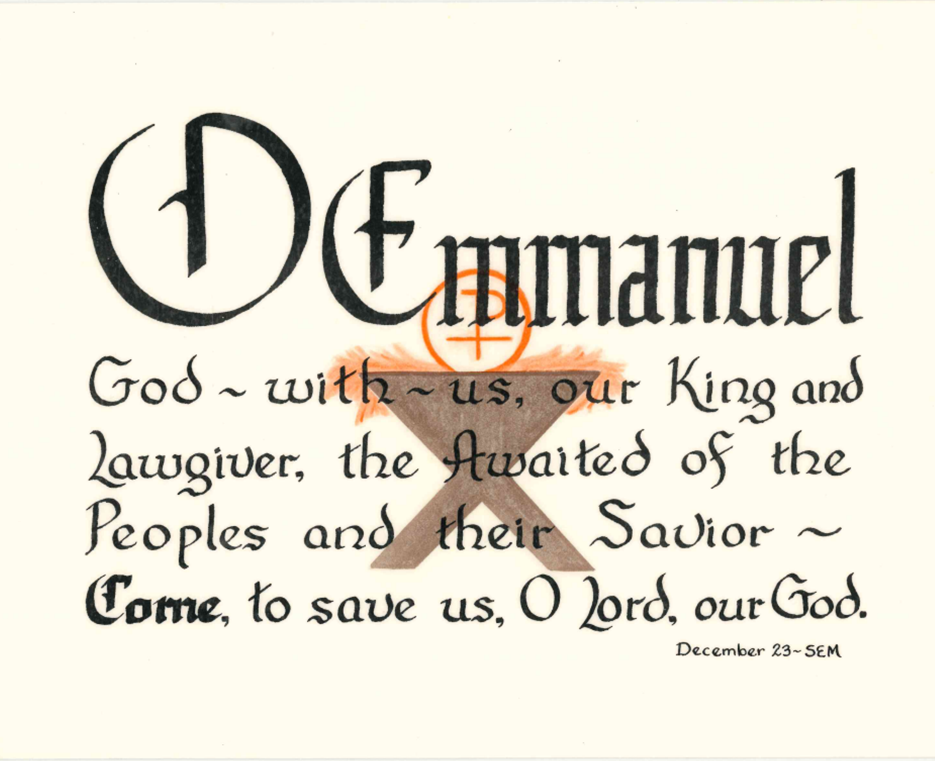 O Emmanuel
God ~ with ~ us, our King and
Lawgiver, the Awaited of the
Peoples and their Savior ~
Come, to save us, O Lord, our God.
December 23~SEM